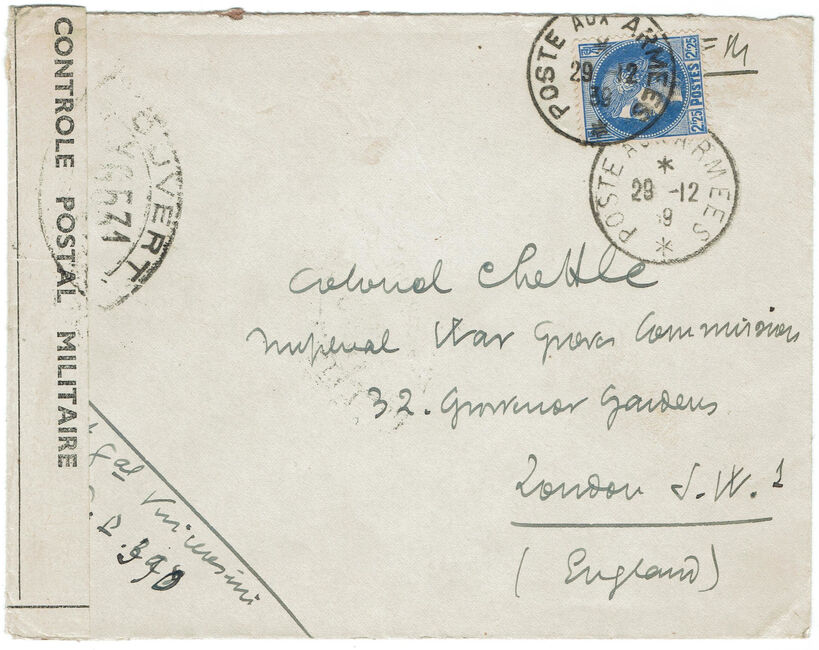 CONTROLE POSTAL MILITAIRE
OUVERT
POSTE AUX ARMEES
29 12
39
2f25 POSTES 2f25
POSTE AUX ARMEES
29 -12
9
Colonel Chettle
Imperial War Graves Commission
32. Grosvenor Gardens
London S.W.1
(England)
Gal
390